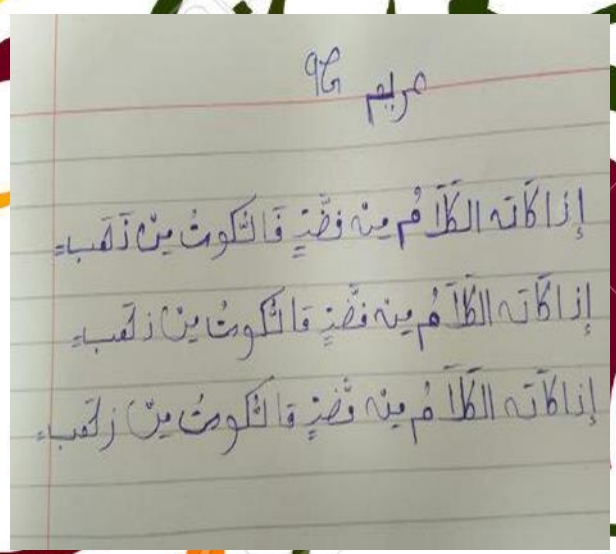 مريم 9G
إذا كَانَ الكَلَامُ مِنْ فِضَّةٍ فَالسُّكُوتُ مِنْ ذَهَبٍ
إذا كَانَ الكَلَامُ مِنْ فِضَّةٍ فَالسُّكُوتُ مِنْ ذَهَبٍ
إذا كَانَ الكَلَامُ مِنْ فِضَّةٍ فَالسُّكُوتُ مِنْ ذَهَبٍ